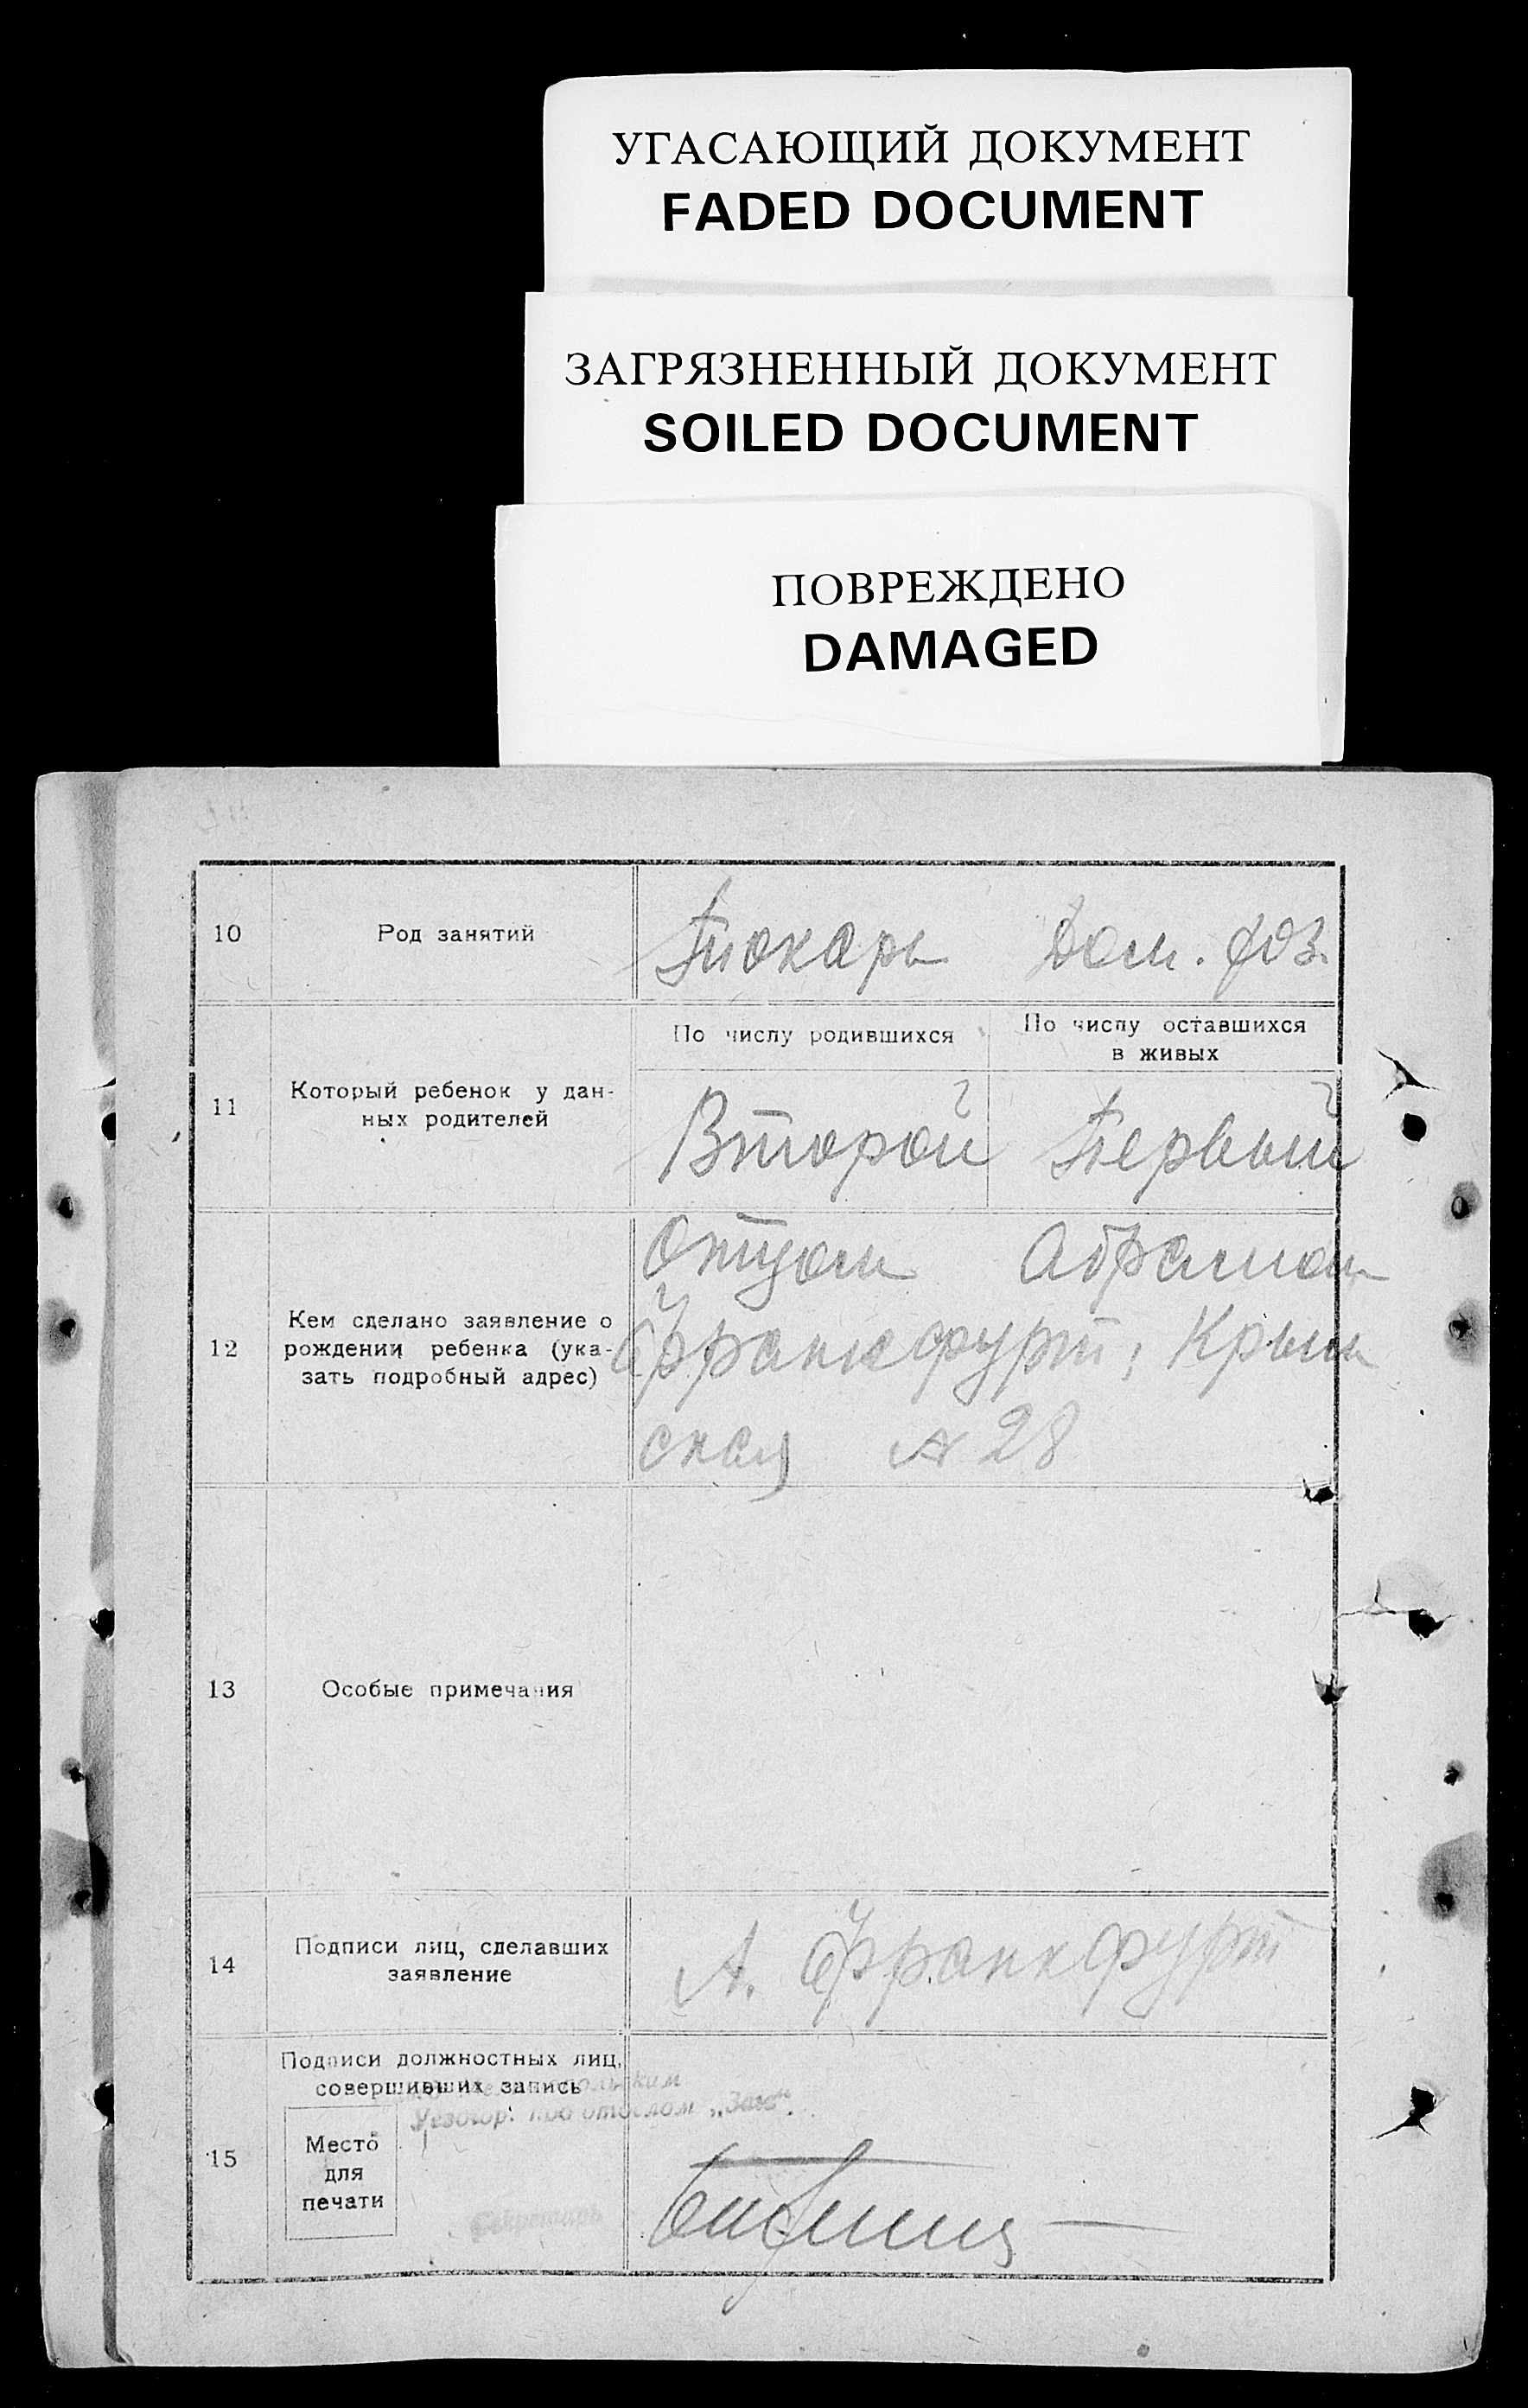 УГАСАЮЩИЙ ДОКУМЕНТ
FADED DOCUMENT
ЗАГРЯЗНЕННЫЙ ДОКУМЕНТ
SOILED DOCUMENT
ПОВРЕЖДЕНО
DAMAGED
10 Род занятий Пекарь Дом. хоз.
По числу родившихся По числу оставшихся
в живых
11 Который ребенок у дан-
ных родителей
Второй Первый
12 Кем сделано заявление о
рождении ребенка (ука-
зать подробный адрес)
Отцом Абрамом
Франкфурт, Крым
ская № 28
13 Особые примечания
14 Подписи лиц, сделавших
заявление
А. Франкфурт
15 Подписи должностных лиц,
совершивших запись
Место
для
печати
Секретарь